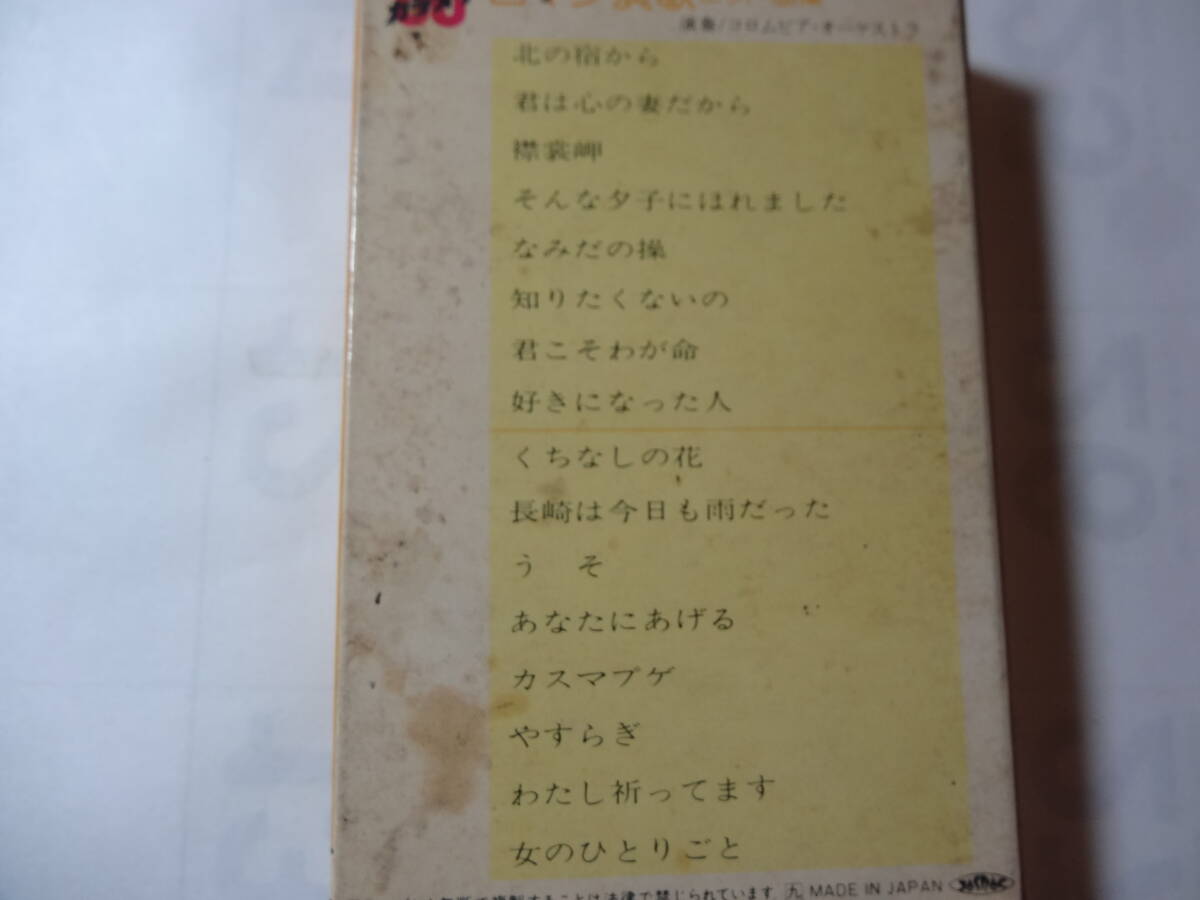 カラオケ
演奏/コロムビア・オーケストラ
北の宿から
君は心の妻だから
襟裳岬
そんな夕子にほれました
なみだの操
知りたくないの
君こそわが命
好きになった人
くちなしの花
長崎は今日も雨だった
うそ
あなたにあげる
カスマプゲ
やすらぎ
わたし祈ってます
女のひとりごと
無断で複製することは法律で禁じられています。 九 MADE IN JAPAN